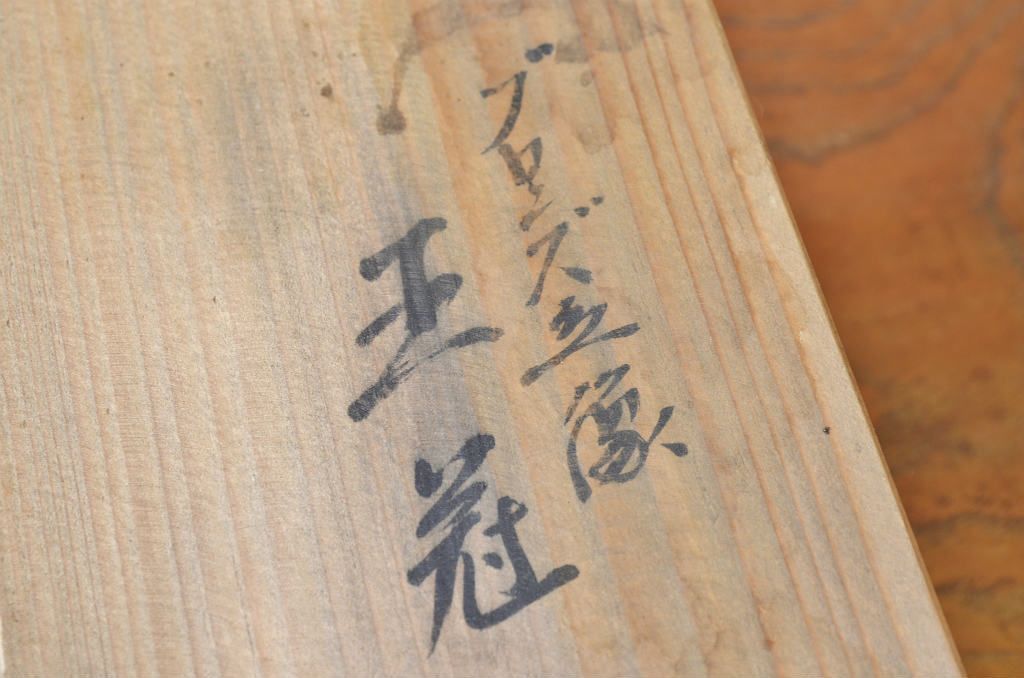 ブロンズ立像
王冠